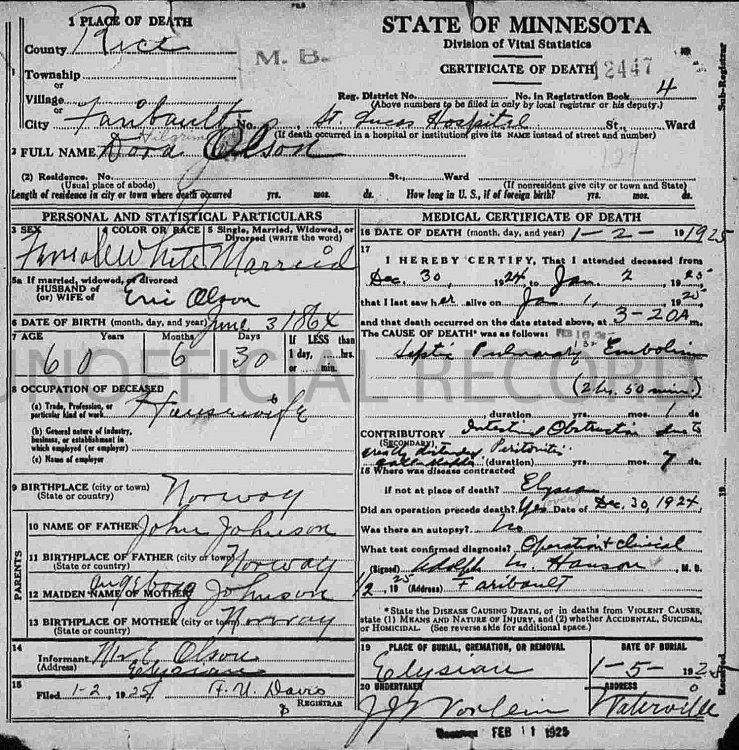 1 PLACE OF DEATH
STATE OF MINNESOTA
Division of Vital Statistics
CERTIFICATE OF DEATH 12447
County Rice
M. B.
Township
or
Village
or
City Faribault No. St. Lucas Hospital St., Ward
Reg. District No. No. in Registration Book 4
(Above numbers to be filled in only by local registrar or his deputy.)
(If death occurred in a hospital or institution give its NAME instead of street and number)
2 FULL NAME Dora Olson
124
(2) Residence. No. St., Ward
(Usual place of abode) (If nonresident give city or town and State)
Length of residence in city or town where death occurred yrs. mos. ds. How long in U. S., if of foreign birth? yrs. mos. ds.
PERSONAL AND STATISTICAL PARTICULARS
3 SEX 4 COLOR OR RACE 5 Single, Married, Widowed, or Divorced (WRITE the word)
Female White Married
5a If married, widowed, or divorced
HUSBAND OF
(or) WIFE OF Eric Olson
6 DATE OF BIRTH (month, day, and year) June 3 1864
7 AGE Years Months Days If LESS than 1 day, hrs. or min.
60 6 30
8 OCCUPATION OF DECEASED
(a) Trade, Profession, or particular kind of work Housewife
(b) General nature of industry, business, or establishment in which employed (or employer)
(c) Name of employer
9 BIRTHPLACE (city or town)
(State or country) Norway
PARENTS
10 NAME OF FATHER John Johnson
11 BIRTHPLACE OF FATHER (city or town)
(State or country) Norway
12 MAIDEN NAME OF MOTHER Ingeborg Johnson
13 BIRTHPLACE OF MOTHER (city or town)
(State or country) Norway
14
Informant Mr E Olson
(Address) Elysian
15
Filed 1-2, 1925 F. U. Davis
REGISTRAR
MEDICAL CERTIFICATE OF DEATH
16 DATE OF DEATH (month, day, and year) 1-2- 1925
17
I HEREBY CERTIFY, That I attended deceased from
Dec. 30, 1924 to Jan. 2, 1925
that I last saw her alive on Jan 1, 1925
and that death occurred on the date stated above, at 3-20A m.
The CAUSE OF DEATH* was as follows: FEB 16
Septic Pulmonary Embolism
(2 hr. 50 min.)
duration yrs. mos. 1 ds.
CONTRIBUTORY Intestinal Obstruction due to
(SECONDARY)
Peritonitis
(duration) yrs. mos. 7 ds.
18 Where was disease contracted
if not at place of death? Elysian
Did an operation precede death? Yes Date of Dec. 30, 1924
Was there an autopsy? No
What test confirmed diagnosis? Operation & clinical
(Signed) Adolph M. Hanson, M. D.
1/2, 1925 (Address) Faribault
*State the DISEASE CAUSING DEATH, or in deaths from VIOLENT CAUSES,
state (1) MEANS AND NATURE OF INJURY, and (2) whether ACCIDENTAL, SUICIDAL,
or HOMICIDAL. (See reverse side for additional space.)
19 PLACE OF BURIAL, CREMATION, OR REMOVAL DATE OF BURIAL
Elysian 1-5- 1925
20 UNDERTAKER ADDRESS
Waterville
Received FEB 11 1925
Sub-Registrar
19
Received
UNOFFICIAL RECORD